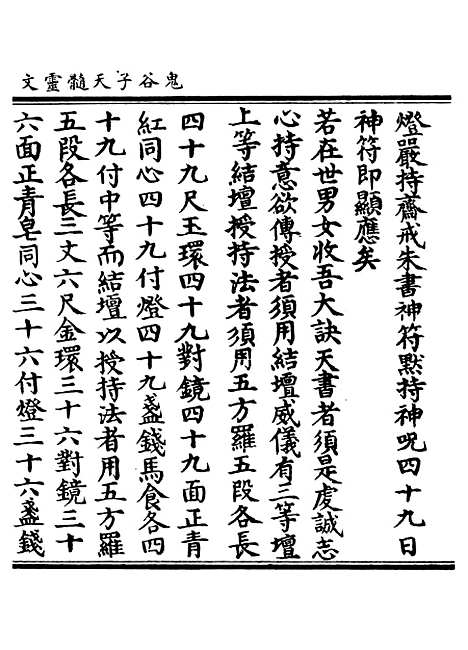 鬼谷子天髓靈文
燈嚴持齋戒朱書神符黙持神呪四十九日
神符即顯應矣
若在世男女收吾大訣天書者須是虔誠志
心持意欲傳授者須用結壇威儀有三等壇
上等結壇授持法者須用五方羅五段各長
四十九尺玉環四十九對鏡四十九面正青
紅同心四十九付燈四十九盞錢馬食各四
十九付中等而結壇以授持法者用五方羅
五段各長三丈六尺金環三十六對鏡三十
六面正青皂同心三十六付燈三十六盞錢